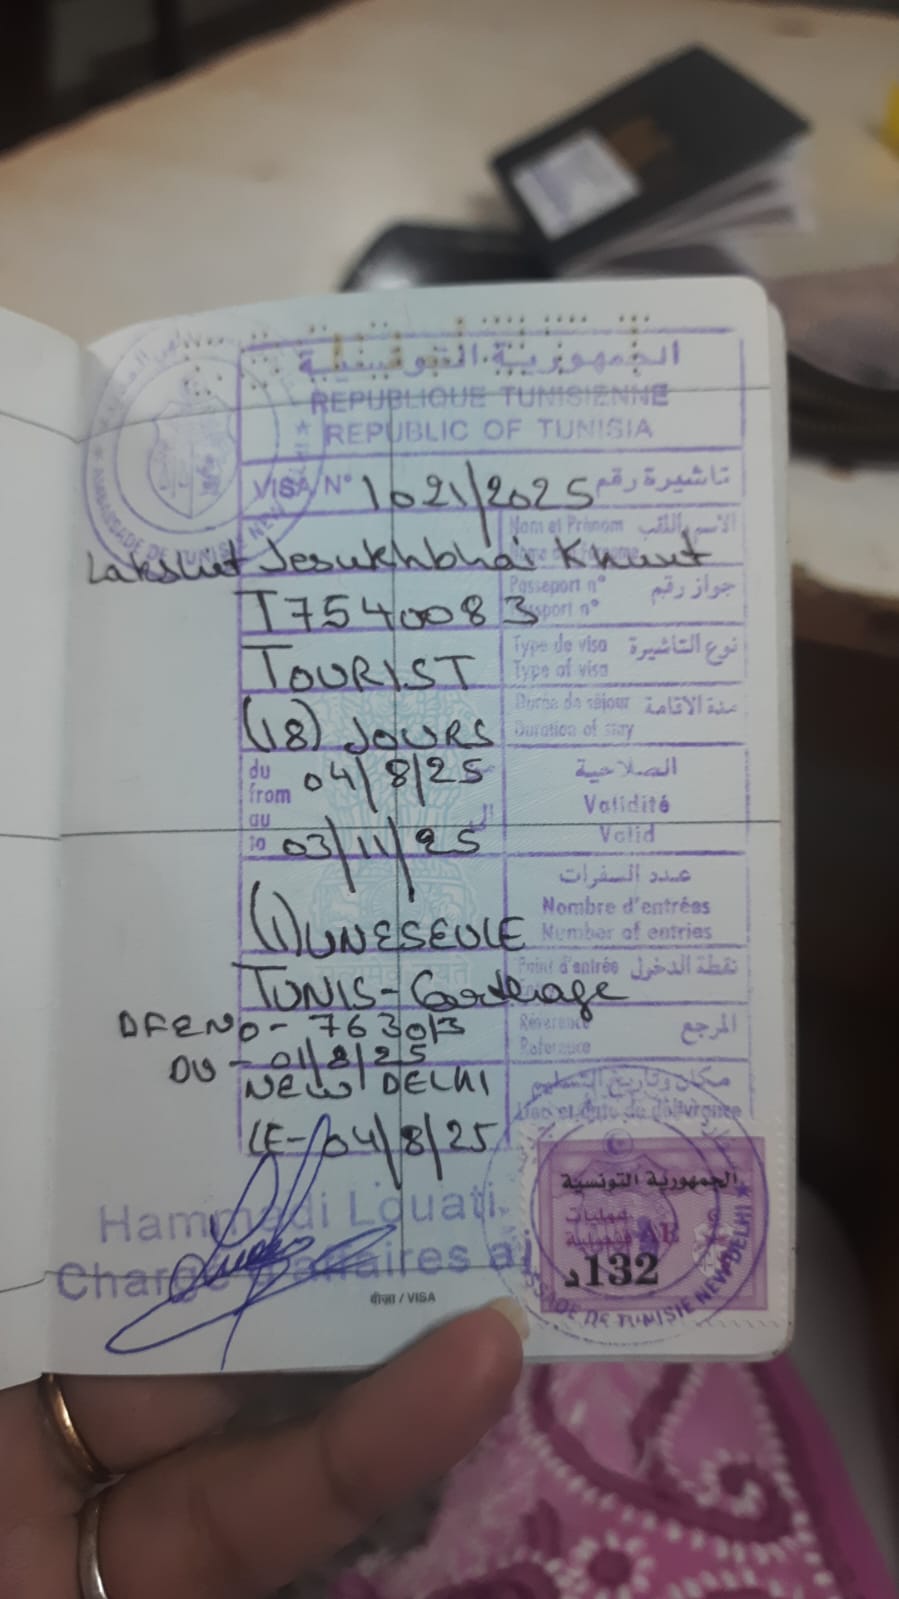 الجمهورية التونسية
REPUBLIQUE TUNISIENNE
REPUBLIC OF TUNISIA
VISA N° 1021/2025 تاشيرة رقم
Nom et Prénom الاسم واللقب
Jesukhbhai Khunt
T7540083 Passeport n° جواز رقم
Passport n°
TOURIST Type de visa نوع التاشيرة
Type of visa
(18) JOURS Durée de séjour مدة الاقامة
Duration of stay
du 04/8/25 الصلاحية
from Validité
au الى Valid
to 03/11/25
عدد السفرات
(1) UNESEULE Nombre d'entrées
Number of entries
TUNIS-Carthage Point d'entrée نقطة الدخول
DFENO- 763013 Référence المرجع
DU - 01/8/25 Reference
NEW DELHI مكان وتاريخ التسليم
Lieu et date de délivrance
LE- 04/8/25
Hammadi Louati
Chargé d'affaires a
वीज़ा / VISA
الجمهورية التونسية
132د
AMBASSADE DE TUNISIE NEW DELHI
AMBASSADE DE TUNISIE NEW DELHI